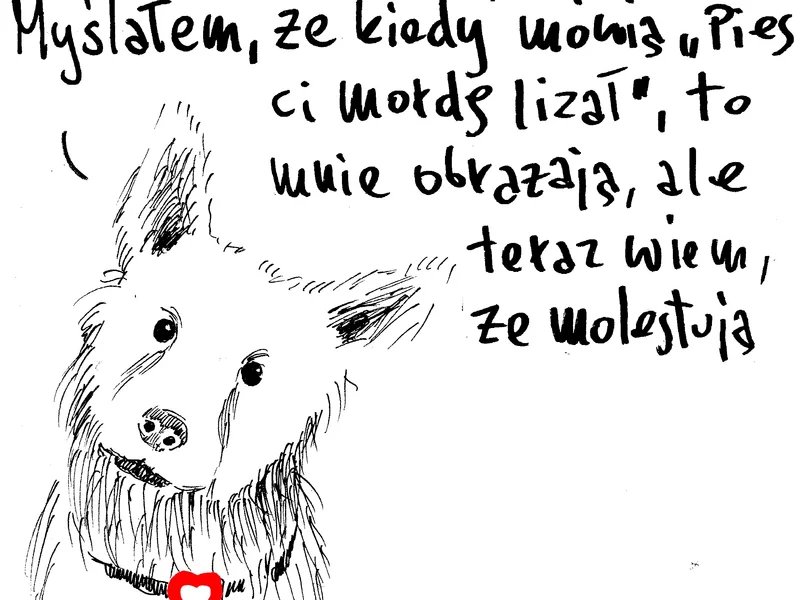 Myślałem, że kiedy mówią „Pies
ci mordę lizał", to
mnie obrażają, ale
teraz wiem,
że molestują